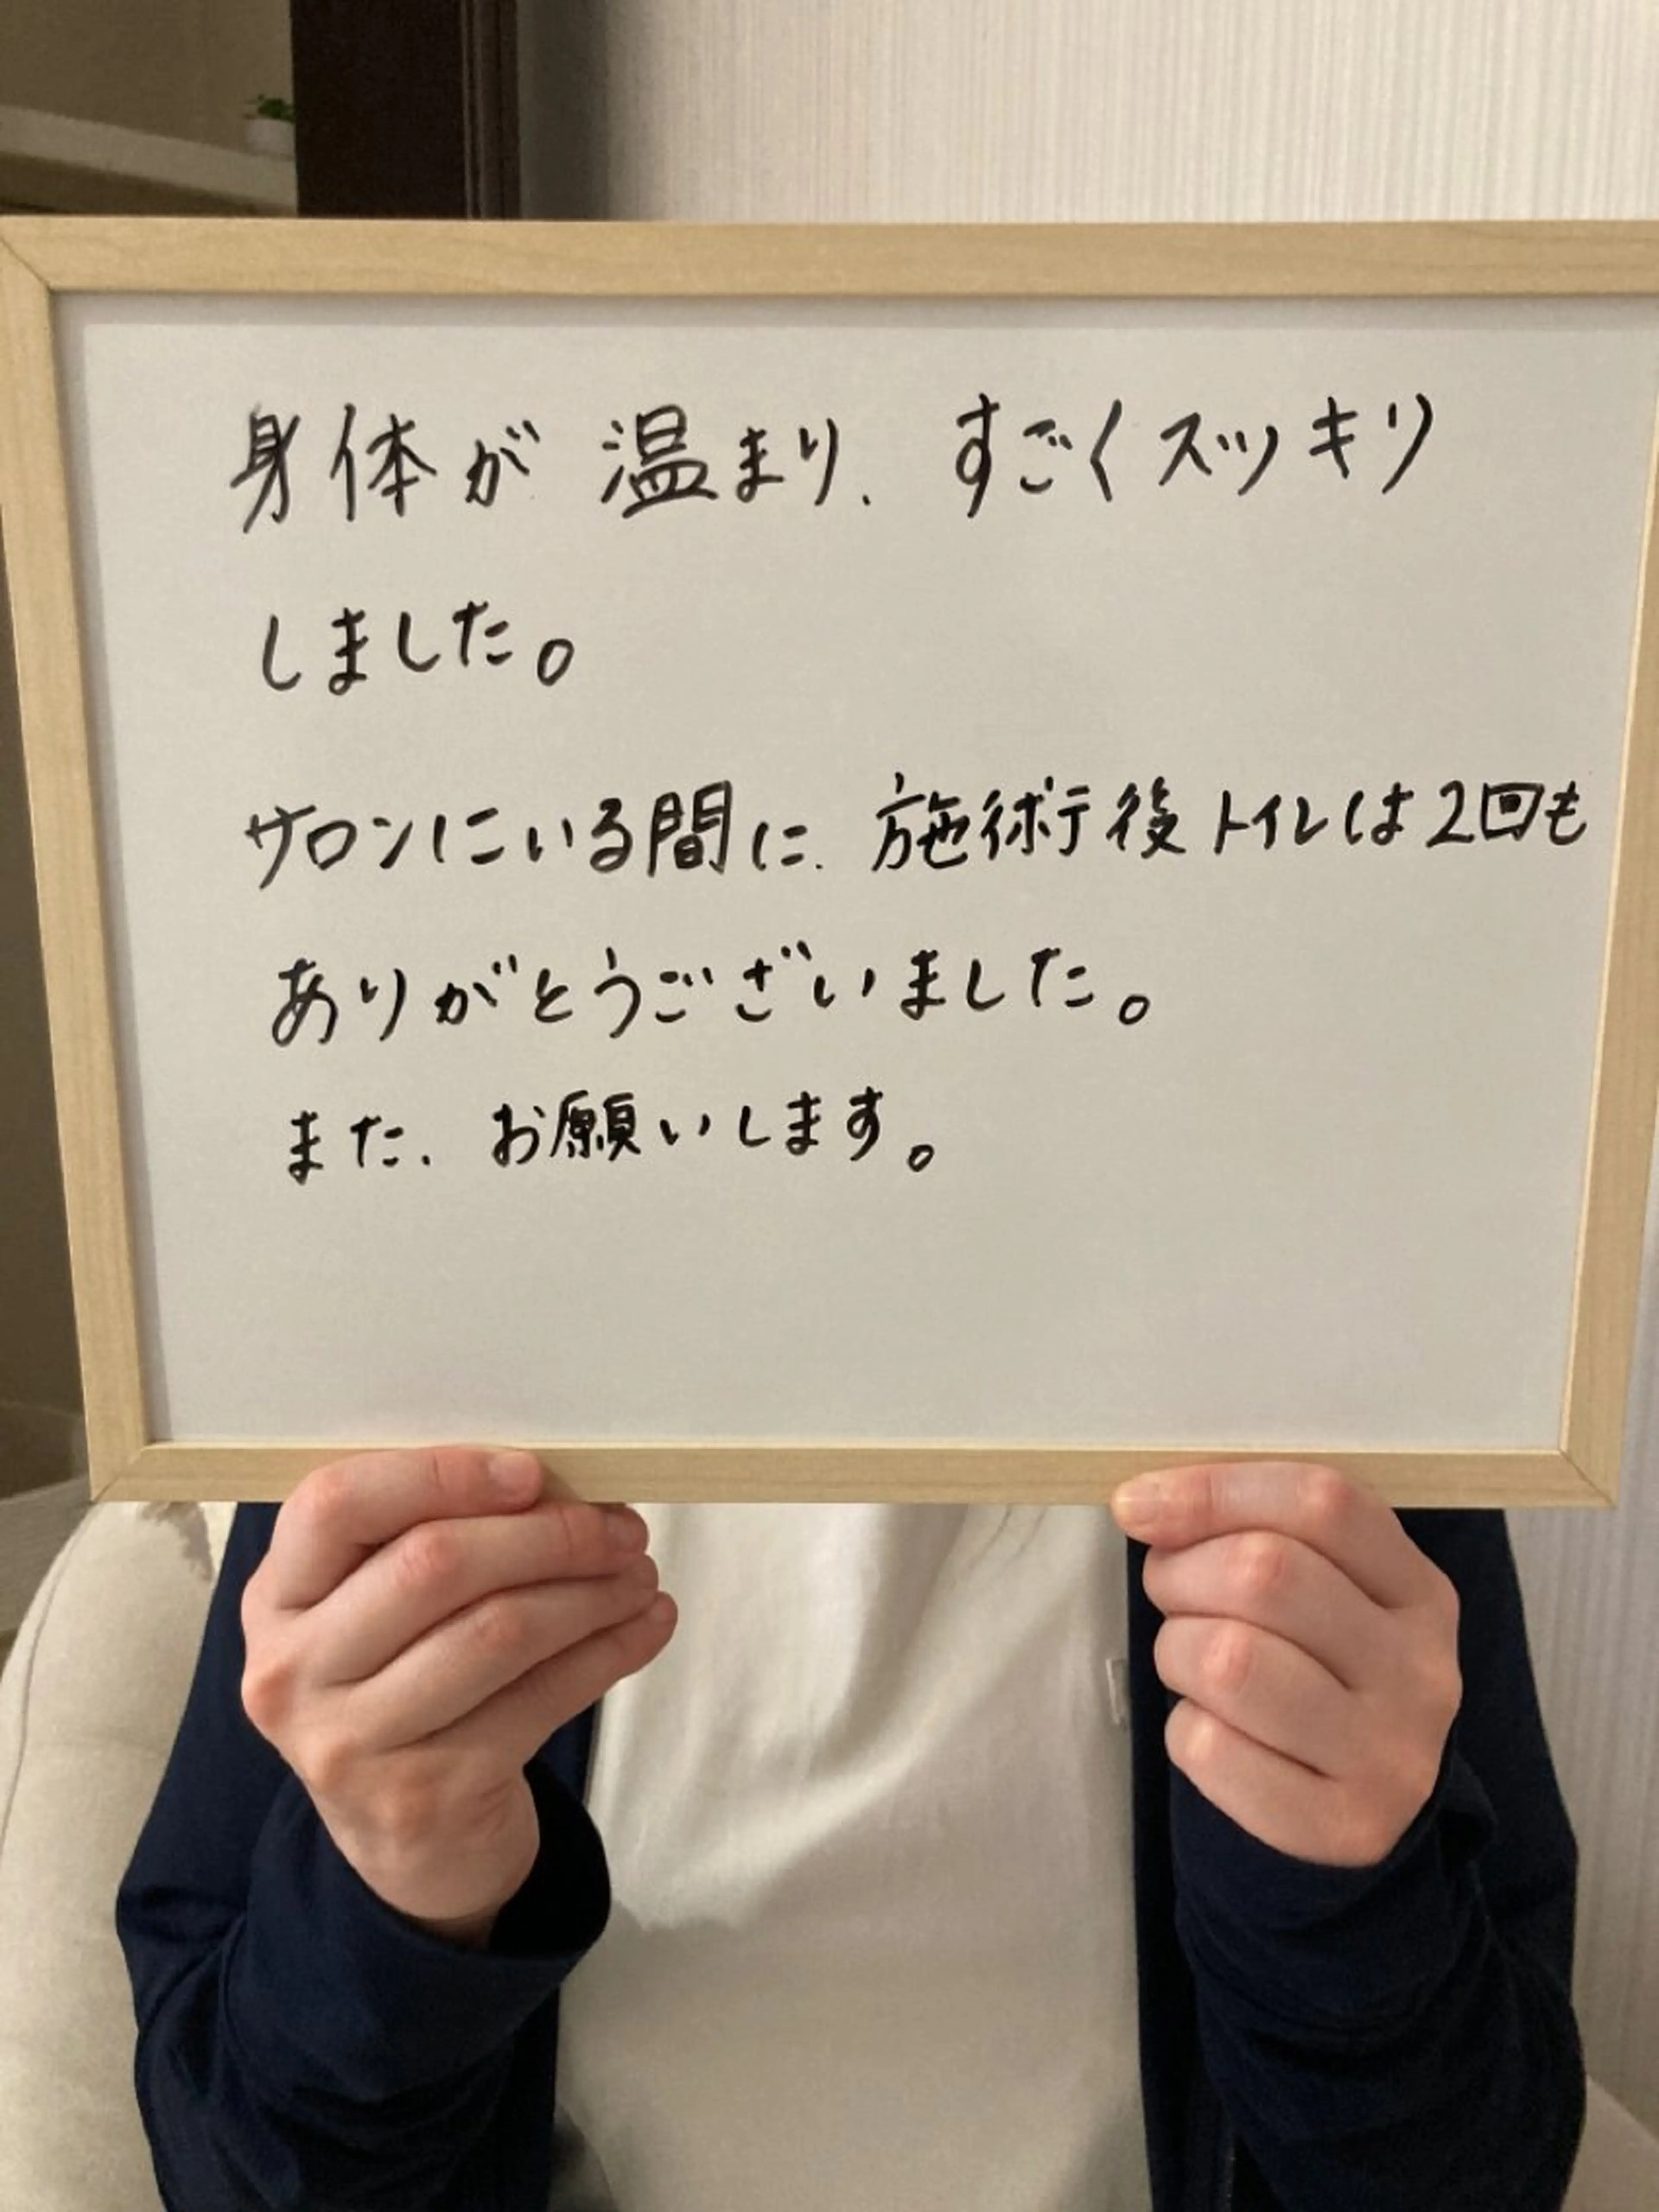 身体が温まり、すごくスッキリ
しました。
サロンにいる間に、施術後トイレは2回も
ありがとうございました。
また、お願いします。